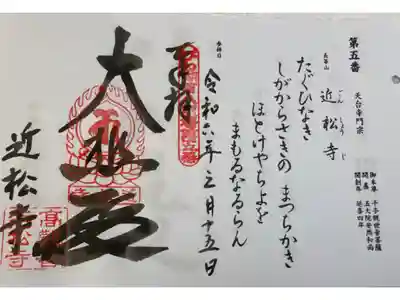 第五番
天台寺門宗
近松寺
ごんしょうじ
御本尊 千手観世音菩薩
開基 五大院安然和尚
開創年 延喜四年
たぐひなき
しがからさきの まつちかき
ほとけやちよを
まもるなるらん
参拝日
令和六年三月十五日
奉拝
大悲殿
近松寺